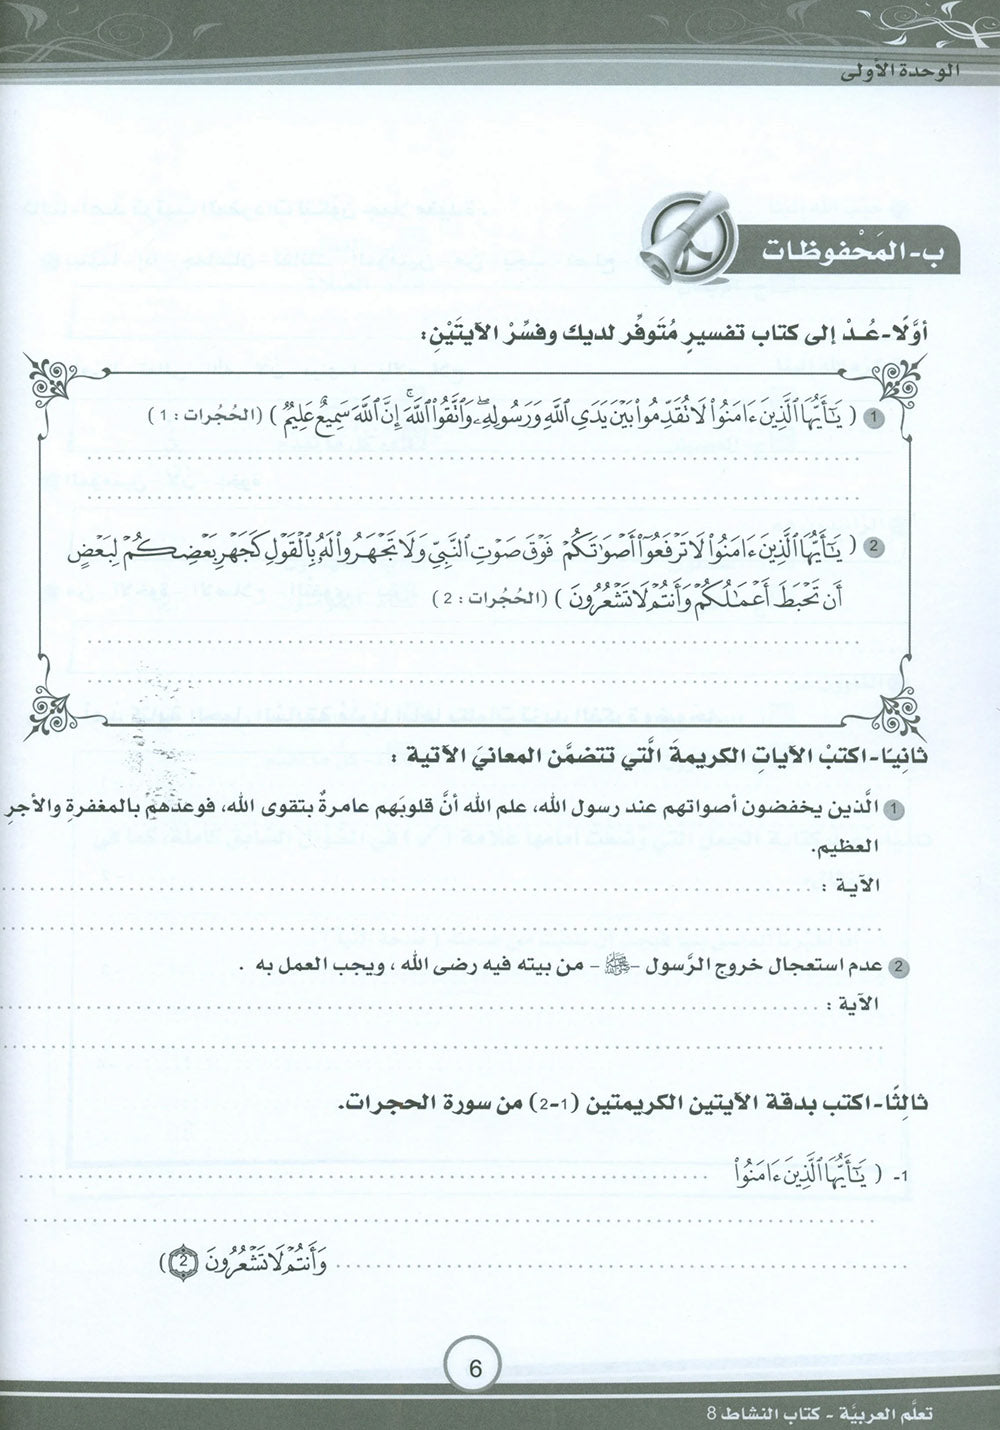 الوحدة الأولى
ب-المَحْفوظات
أوَّلًا-عُدْ إلى كتاب تفسيرٍ مُتَوفِّر لديك وفسِّرْ الآيتَيْنِ:
1 ( يَٰٓأَيُّهَا ٱلَّذِينَ ءَامَنُوا۟ لَا تُقَدِّمُوا۟ بَيْنَ يَدَىِ ٱللَّهِ وَرَسُولِهِۦ ۖ وَٱتَّقُوا۟ ٱللَّهَ ۚ إِنَّ ٱللَّهَ سَمِيعٌ عَلِيمٌ ) (الحُجُرات : 1)
2 ( يَٰٓأَيُّهَا ٱلَّذِينَ ءَامَنُوا۟ لَا تَرْفَعُوٓا۟ أَصْوَٰتَكُمْ فَوْقَ صَوْتِ ٱلنَّبِىِّ وَلَا تَجْهَرُوا۟ لَهُۥ بِٱلْقَوْلِ كَجَهْرِ بَعْضِكُمْ لِبَعْضٍ
أَن تَحْبَطَ أَعْمَٰلُكُمْ وَأَنتُمْ لَا تَشْعُرُونَ ) (الحُجُرات : 2)
ثانِيًا-اكتبْ الآياتِ الكريمةَ الَّتي تتضمَّن المعانيَ الآتية :
1 الَّذين يخفضون أصواتهم عند رسول الله، علم الله أنَّ قلوبَهم عامرةٌ بتقوى الله، فوعدهم بالمغفرةِ والأجرِ
العظيم.
الآية :
2 عدم استعجال خروج الرَّسول -ﷺ- من بيته فيه رضى الله ، ويجب العمل به .
الآية :
ثالِثًا-اكتب بدقة الآيتين الكريمتين (1-2) من سورة الحجرات.
1- ( يَٰٓأَيُّهَا ٱلَّذِينَ ءَامَنُوا۟
وَأَنتُمْ لَا تَشْعُرُونَ 2 )
6
تعلَّم العربيَّة - كتاب النشاط 8